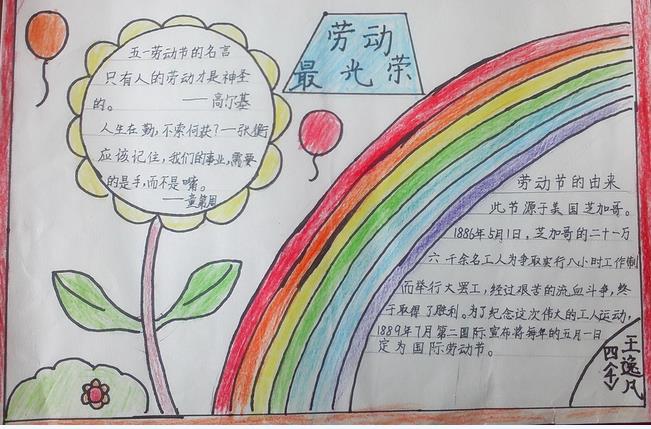 劳动
最光荣
五一劳动节的名言
只有人的劳动才是神圣
的。——高尔基
人生在勤,不索何获?—张衡
应该记住,我们的事业,需要
的是手,而不是嘴。
——童第周
劳动节的由来
此节源于美国芝加哥。
1886年5月1日,芝加哥的二十一万
六千余名工人为争取实行八小时工作制
而举行大罢工,经过艰苦的流血斗争,终
于取得了胜利。为了纪念这次伟大的工人运动,
1889年7月第二国际宣布将每年的五月一日
定为国际劳动节。
王逸凡